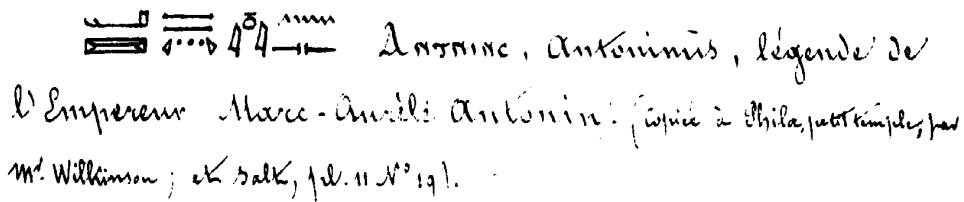 Antninc, Antoninus, légende de
l'Empereur Marc-Aurèle Antonin. (copiée à Philæ, petit temple, par
Mr. Wilkinson; et Salt, pl. 11 No 19).